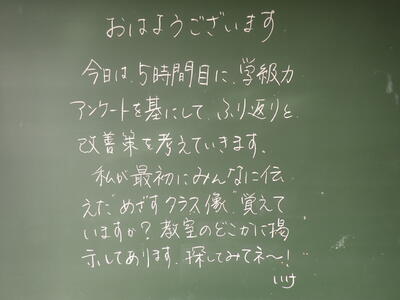 おはようございます
今日は、5時間目に、学級力
アンケートを基にして、ふり返りと
改善策を考えていきます。
私が最初にみんなに伝
えた"めざすクラス像"覚えて
いますか？教室のどこかに掲
示してあります。探してみてネ〜！
いけ